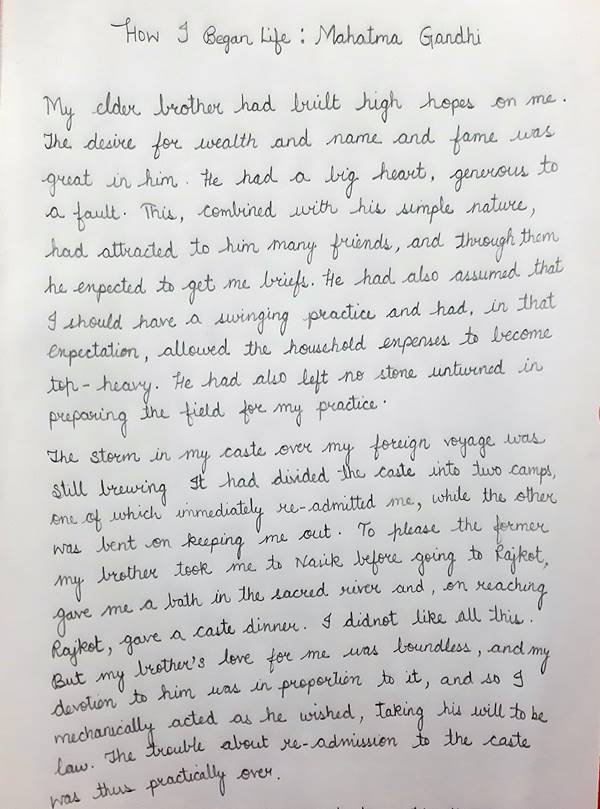 How I Began Life : Mahatma Gandhi
My elder brother had built high hopes on me.
The desire for wealth and name and fame was
great in him. He had a big heart, generous to
a fault. This, combined with his simple nature,
had attracted to him many friends, and through them
he expected to get me briefs. He had also assumed that
I should have a swinging practice and had, in that
expectation, allowed the household expenses to become
top-heavy. He had also left no stone unturned in
preparing the field for my practice.
The storm in my caste over my foreign voyage was
still brewing It had divided the caste into two camps,
one of which immediately re-admitted me, while the other
was bent on keeping me out. To please the former
my brother took me to Nasik before going to Rajkot,
gave me a bath in the sacred river and, on reaching
Rajkot, gave a caste dinner. I didnot like all this.
But my brother's love for me was boundless, and my
devotion to him was in proportion to it, and so I
mechanically acted as he wished, taking his will to be
law. The trouble about re-admission to the caste
was thus practically over.